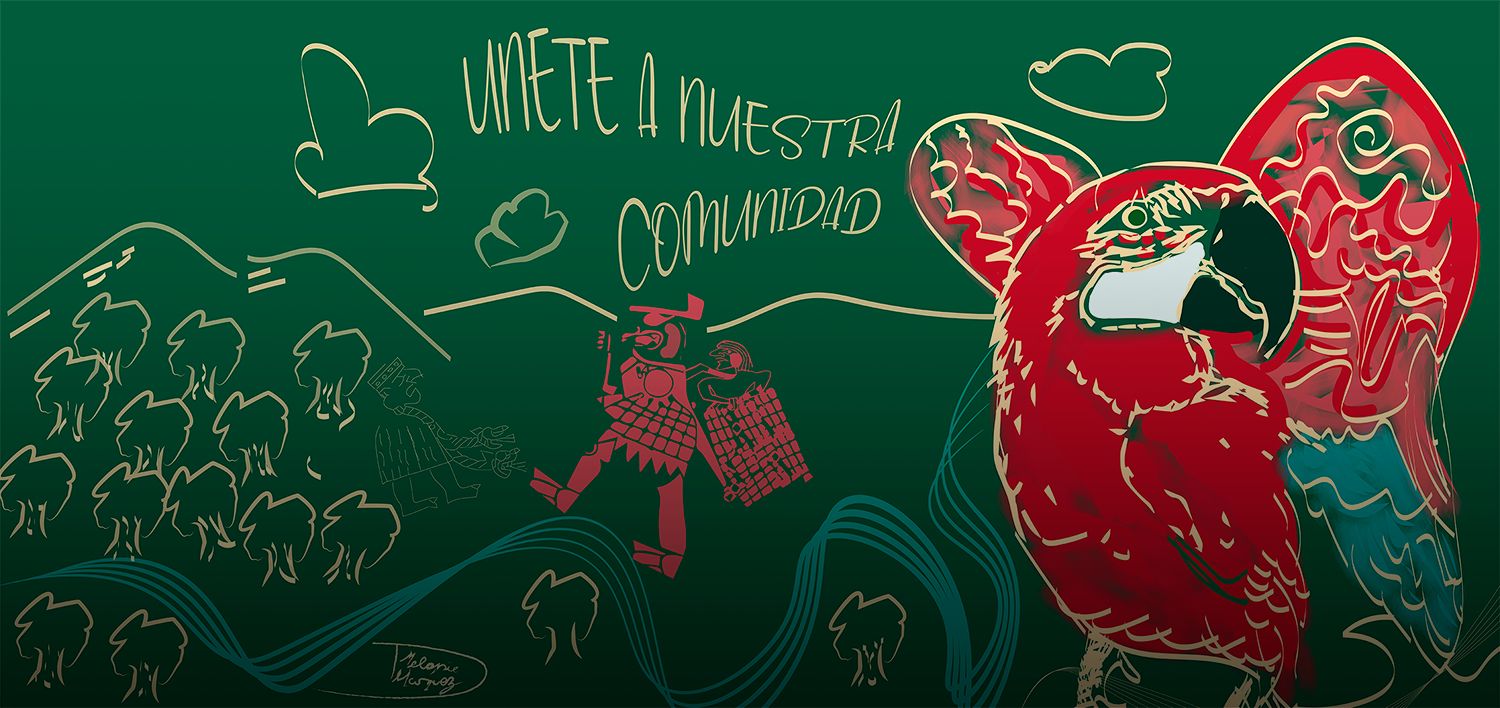 UNETE A NUESTRA
COMUNIDAD
Melanie
Marquez